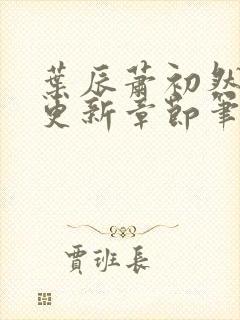 葉辰蕭初然
更新章節筆
賈班長